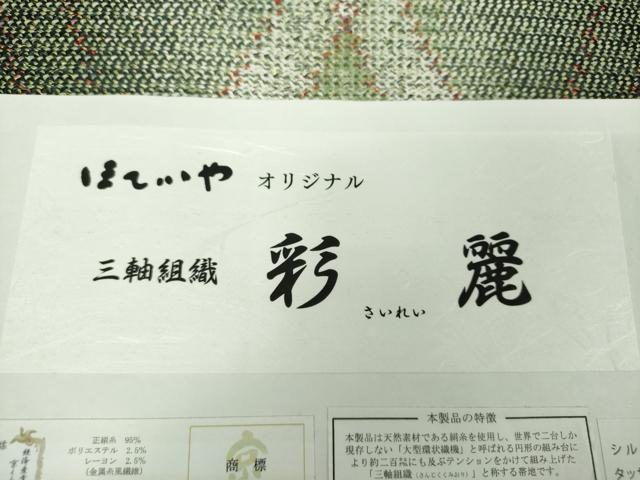 ほていや オリジナル
三軸組織 彩麗
さいれい
正絹糸 95%
ポリエステル 2.5%
レーヨン 2.5%
(金属糸風繊維)
京
商標
本製品の特徴
本製品は天然素材である絹糸を使用し、世界で二台しか
現存しない「大型環状織機」と呼ばれる円形の組み台に
より約二百㌔にも及ぶテンションをかけて組み上げた
「三軸組織(さんじくくみおり)」と称する帯地です。
シル
タッ